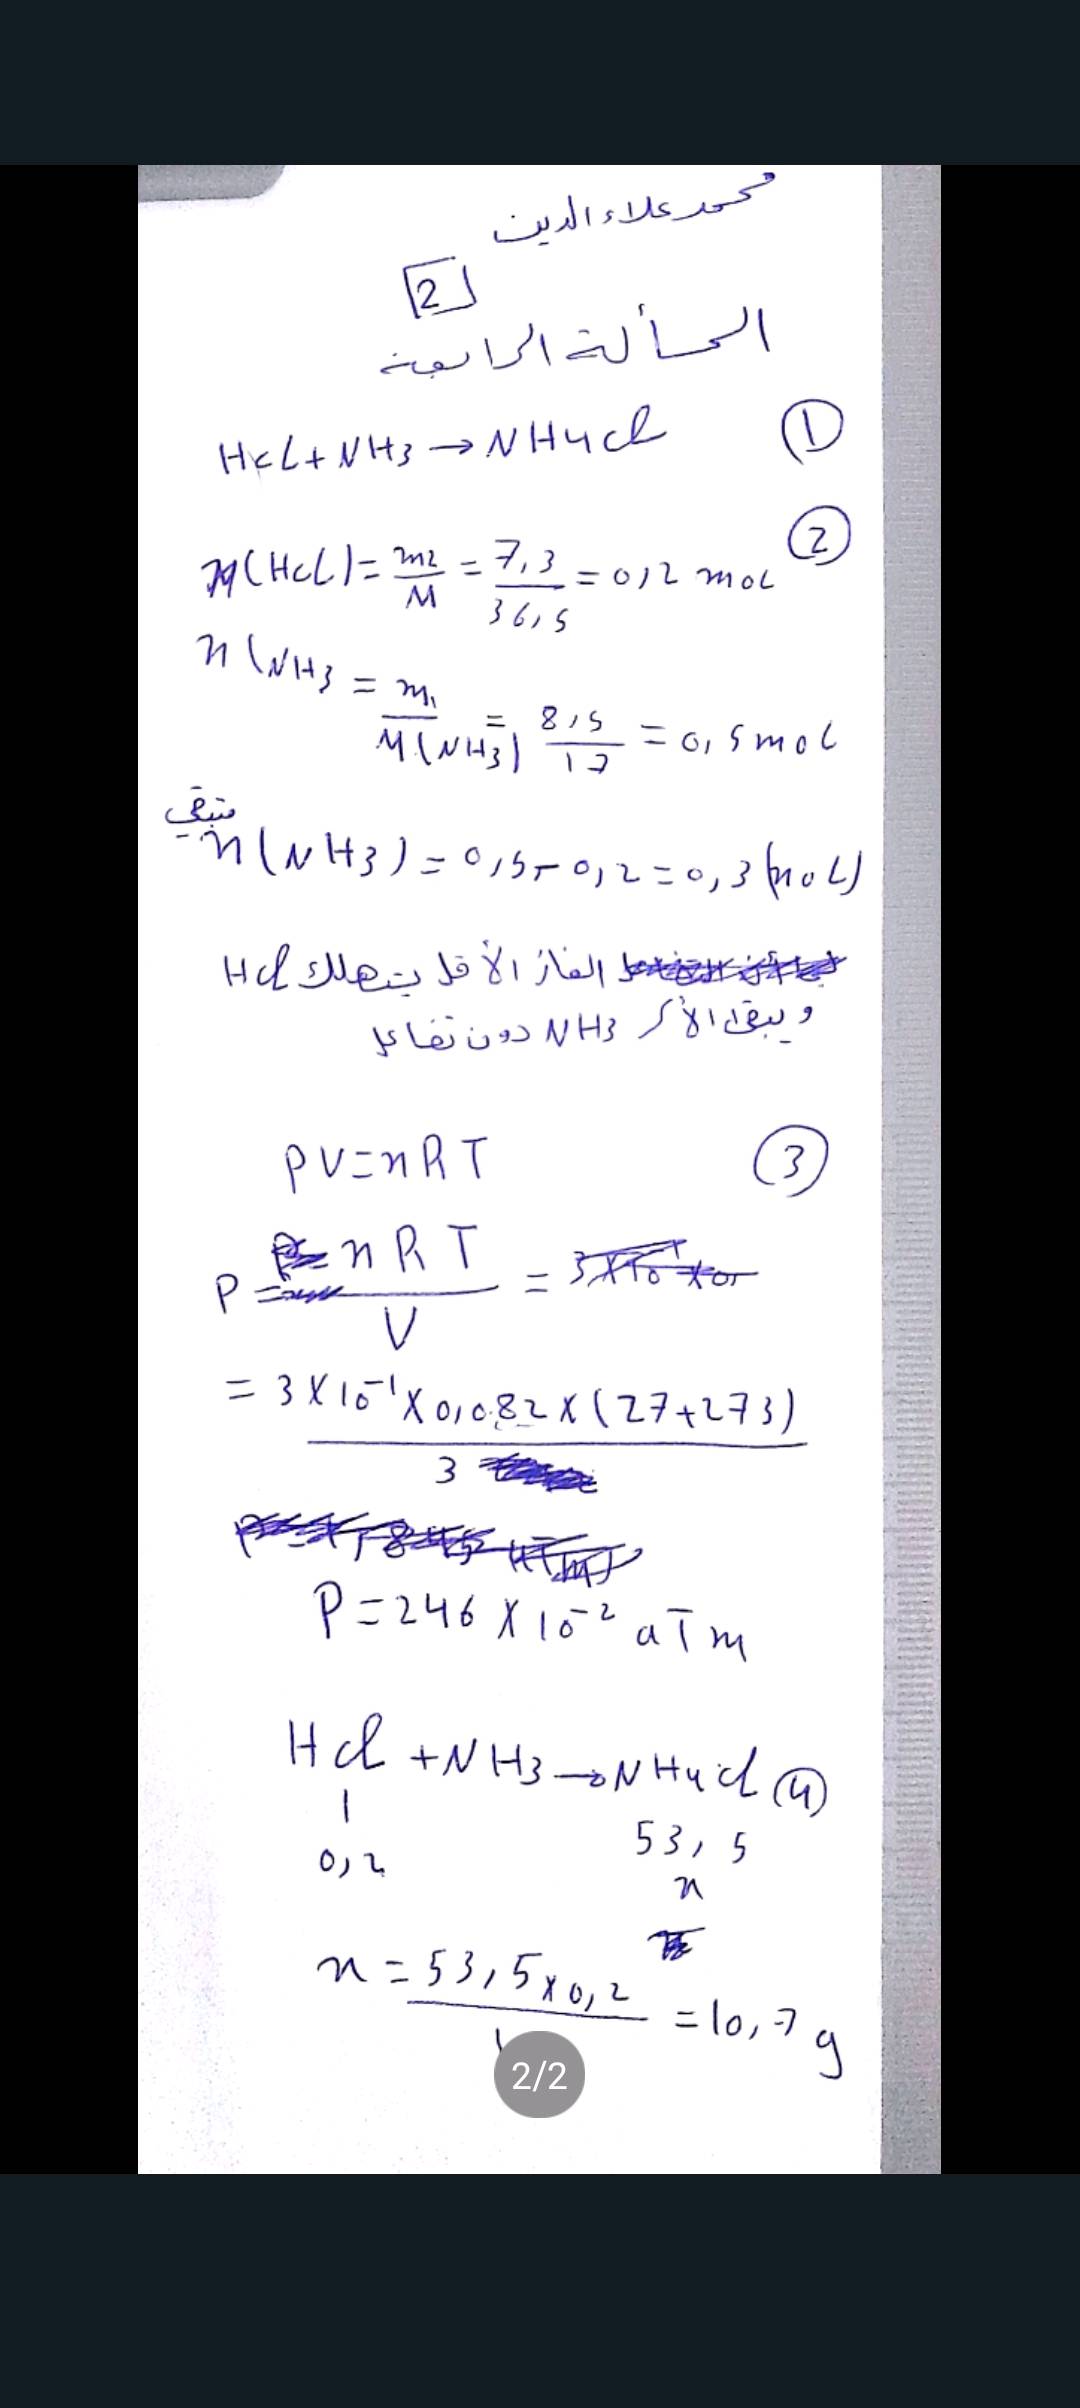 محمد علاء الدين
2
المسألة الرابعة
HCl + NH3 → NH4Cl ①
n(HCl) = m2/M = 7,3/36,5 = 0,2 mol ②
n(NH3 = m1/M(NH3) = 8,5/17 = 0,5 mol
متبقي
n(NH3) = 0,5 - 0,2 = 0,3 (mol)
الغاز الأقل يستهلك HCl
ويبقى الأكثر NH3 دون تفاعل
PV = nRT ③
P = nRT/V =
= 3 × 10⁻¹ × 0,082 × (27+273)/3
P = 246 × 10⁻² aTm
HCl + NH3 → NH4Cl ④
1 53,5
0,2 x
x = 53,5 × 0,2/1 = 10,7 g
2/2